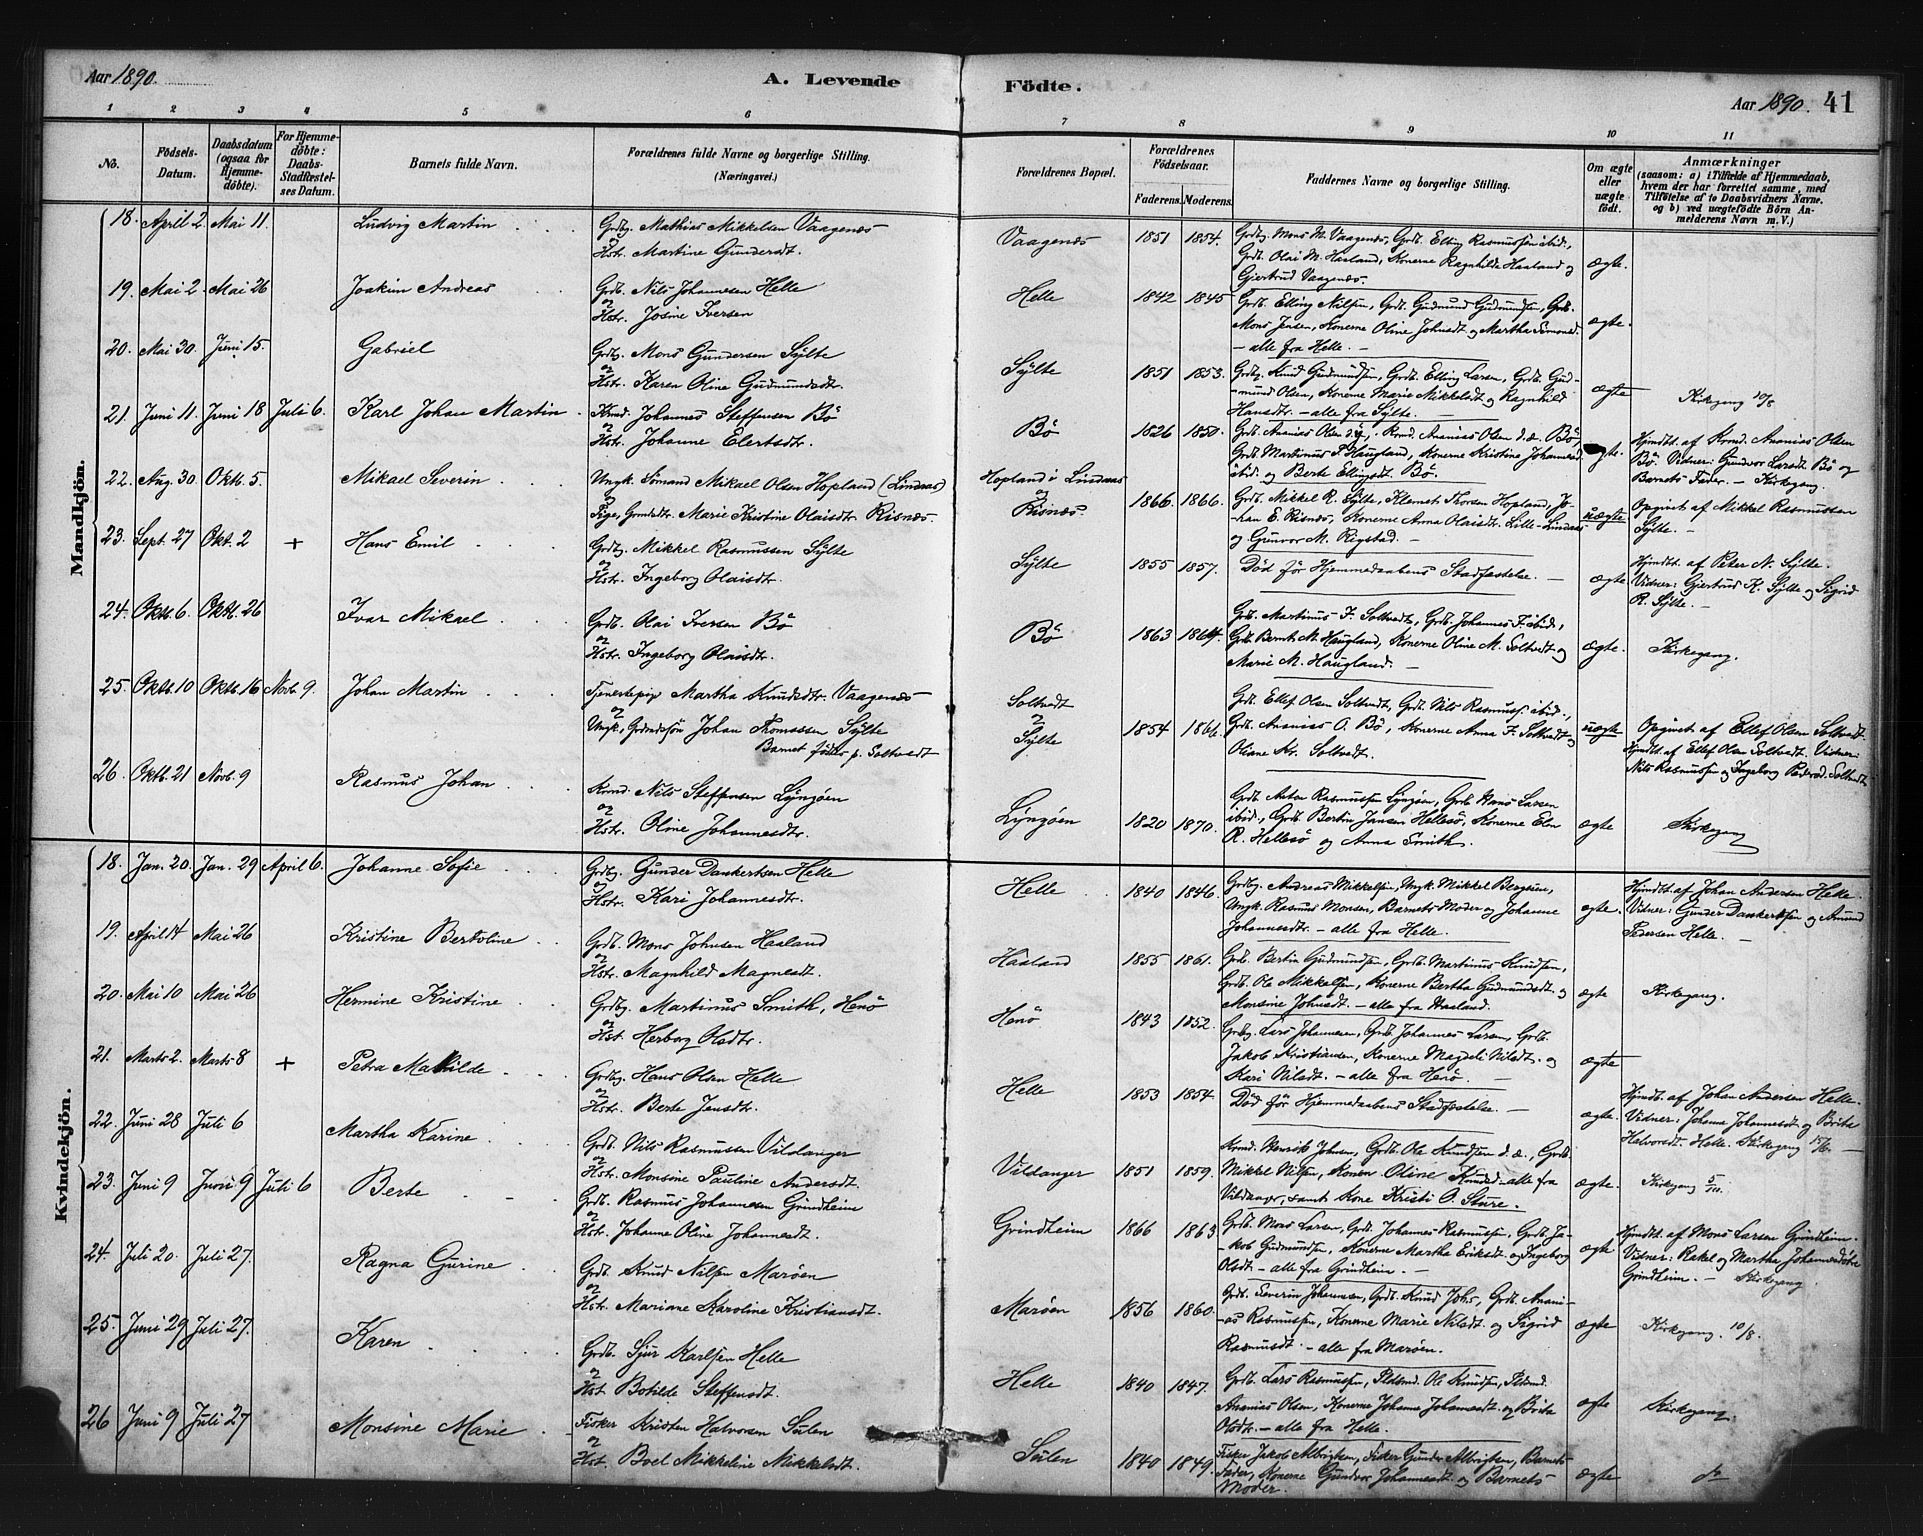 Aar 1890.
A. Levende
Födte.
Aar 1890. 41
1 2 3 4 5 6 7 8 9 10 11
No.
Födsels-Datum.
Daabsdatum (ogsaa for Hjemme-döbte).
For Hjemme-döbte: Daabs-Stadfæstel-ses Datum.
Barnets fulde Navn.
Forældrenes fulde Navne og borgerlige Stilling.
(Næringsvei.)
Forældrenes Bopæl.
Forældrenes Födselsaar.
Faderens. Moderens.
Faddernes Navne og borgerlige Stilling.
Om ægte eller uægte födt.
Anmærkninger
(saasom: a) i Tilfælde af Hjemmedaab, hvem der har forrettet samme, med Tilföielse af to Daabsvidners Navne. og b) ved uægtefödte Börn An-melderens Navn m. V.)
Mandkjön.
18. April 2. Mai 11. Ludvig Martin
Grdbg. Mathias Mikkelsen Vaagenæs
Hst. Martine Gundersdt.
Vaagenæs 1851 1854.
Grdbg. Mons M. Vaagenæs, Grdb. Elling Rasmussen ibid.,
Grdb. Olai M. Haaland, Konerne Ragnhilde Haaland og
Gjertrud Vaagenæs.
ægte.
19. Mai 2. Mai 26 Joakim Andreas
Grdb. Nils Johannesen Helle
og
Hstr. Josine Iversen
Helle 1842 1845
Grdb. Elling Nilsen, Grdb. Gudmund Gudmundsen, Grdb.
Mons Jensen, Konerne Oline Johnsdt og Martha Simonsd.
– alle fra Helle. –
ægte.
20. Mai 30. Juni 15. Gabriel
Grdbg. Mons Gundersen Sylte
og
Hstr. Karen Oline Gudmundsdt.
Sylte 1851 1853.
Grdbg. Knud Gudmundsen, Grdb. Elling Larsen, Grdb. Gud-
mund Olsen, Konerne Marie Mikkelsdt og Ragnhild
Hansdtr. – alle fra Sylte. –
ægte
Kirkegang 10/8
21. Juni 11. Juni 18 Juli 6. Karl Johan Martin
Krmd. Johannes Steffensen Bö
og
Hstr. Johanne Elertsdtr.
Bö 1826 1850.
Grdb. Ananias Olsen d.y., Krmd. Ananias Olsen d.æ. Bö,
Grdb. Martinus P. Haugland, Konerne Kristine Johannesd.
ibid. og Berte Ellingsdt. Bö.
ægte.
Hjmdbt. af Krmd. Ananias Olsen
Bö. Vidner: Gundvor Larsdt. Bö og
Barnets Fader. – Kirkegang.
22. Aug. 30. Oktb. 5. Mikael Severin
Ungk. Sömand Mikael Olsen Hopland (Lindaas)
Pige, Grmdsdtr. Marie Kristine Olaisdtr. Risnes.
Hopland i Lindaas
og
Risnæs. 1866. 1866.
Grdb. Mikkel R. Sylte, Klemet Thorsen Hopland, Jo-
han E. Risnæs, Konerne Anna Olaisdt. Lille-Lindaas
og Gunvor M. Rigstad. –
uægte
Opgivet af Mikkel Rasmussen
Sylte. –
23. Sept. 27 Okt. 2 + Hans Emil
Grdbg. Mikkel Rasmussen Sylte
og
Hstr. Ingeborg Olaisdtr.
Sylte 1855 1857.
Död för Hjemmedaabens Stadfæstelse. –
ægte
Hjmdbt. af Peter N. Sylte.
Vidner: Gjertrud K. Sylte og Sigrid
R. Sylte. –
24. Oktb. 6. Oktb. 26 Ivar Mikael
Grdb. Olai Iversen Bö
og
Hstr. Ingeborg Olaisdtr.
Bö 1863 1864.
Grb. Martinus F. Soltvedt, Grdb. Johannes F. ibid.,
Grdb. Bernt M. Haugland, Konerne Oline M. Soltvedt og
Marie M. Haugland. –
ægte.
Kirkegang.
25. Oktb. 10 Oktb. 16 Novb. 9. Johan Martin
Tjenestepig Martha Knudsdtr. Vaagenæs
og
Ungk, Grdmdssön Johan Thomassen Sylte
Barnet födtes p. Soltvedt
Soltvedt
og
Sylte 1854 1866.
Grdb. Ellef Olsen Soltvedt, Grdb. Nils Rasmussen ibid.,
Grdb. Ananias O. Bö, Konerne Anna F. Soltvedt og
Oliane Kr. Soltvedt.
uægte
Opgivet af Ellef Olsen Soltvedt.
Hjmdbt. af Ellef Olsen Soltvedt. Vidner:
Nils Rasmussen og Ingeborg Pedersd. Soltvedt
26. Oktb. 21 Novb. 9 Rasmus Johan
Krmd. Nils Steffensen Lyngöen
og
Hstr. Oline Johannesdtr.
Lyngöen 1820 1870.
Grdb. Anton Rasmussen Lyngöen, Grdb. Hans Larsen
ibid., Grdb. Bertin Jansen Hellesö, Konerne Elen
R. Hellesö og Anna Smith.
ægte
Kirkegang
Kvindekjön.
18. Jan. 20. Jan. 29 April 6. Johanne Sofie
Grdbg. Gunder Dankertsen Helle
og
Hstr. Kari Johannesdtr.
Helle 1840 1846.
Grdbg. Andreas Mikkelsen, Ungk. Mikkel Bergsen,
Ungk. Rasmus Monsen, Barnets Moder og Johanne
Johannesdtr. – alle fra Helle.
ægte.
Hjmdbt. af Johan Andersen Helle.
Vidner: Gunder Dankertsen og Amund
Pedersen Helle. –
19. April 14 Mai 26 Kristine Bertoline
Grdb. Mons Johnsen Haaland
og
Hstr. Magnhild Magnesdt.
Haaland 1855 1861.
Grdb. Bertin Gudmundsen, Grdb. Martinus Knudsen,
Grdb. Ole Mikkelsen, Konerne Bertha Gudmundsdt. og
Monsine Johnsdt. – alle fra Haaland.
ægte
Kirkegang.
20. Mai 10 Mai 26 Hermine Kristine
Grdbg. Martinus Smith, Henö
og
Hst. Herborg Olsdtr.
Henö 1843 1852.
Grdbg. Lars Johannesen, Grdb. Johannes Larsen, Grdb.
Jakob Kristiansen, Konerne Magdeli Nilsdt. og
Kari Nilsdt. – alle fra Henö. –
ægte
21. Marts 2. Marts 8 + Petra Mathilde
Grdbg. Hans Olsen Helle
og
Hstr. Berte Jensdtr.
Helle 1853 1854.
Död för Hjemmedaabens Stadfæstelse. –
ægte.
Hjmdbt. af Johan Andersen Helle.
Vidner: Johanna Johannesdt og Brita
Halvorsdt. Helle. Kirkegang
22. Juni 28 Juli 6 Martha Karine
Grdb. Nils Rasmussen Vildanger
og
Hstr. Monsine Pauline Andersdt.
Vildanger 1851 1859.
Krmd. Henrik Johnsen, Grdb. Ole Knudsen d.æ., Grdb.
Mikkel Nilsen, Konen Oline Knudsd – alle fra
Vildanger, samt Kone Kristi O. Sture.
ægte.
Kirkegang 5/10.
23. Juni 9 Juni 9 Juli 6 Berte
Grdb. Rasmus Johannesen Grindheim
og
Hst. Johanne Oline Johannesdt.
Grindheim 1866 1863
Grdb. Mons Larsen, Grdb. Johannes Rasmussen, Grdb. Ja-
kob Gudmundsen, Konerne Martha Eriksdt og Ingeborg
Olsdt. – alle fra Grindheim. –
ægte
Hjmdbt. af Mons Larsen Grindheim.
Vidner: Rakel og Martha Johannesdötre
Grindheim. – Kirkegang.
24. Juli 20. Juli 27. Ragna Gurine
Grdb. Knud Nilsen Maröen
og
Hstr. Mariane Karoline Kristiansdt.
Maröen 1856 1860.
Grdb. Severin Johannesen, Grdb. Knud Johs, Grdb. Anani-
as Rasmussen, Konerne Marie Nilsdt. og Sigrid
Rasmusdt. – alle fra Maröen.
ægte
Kirkegang. 10/8.
25. Juni 29 Juli 27. Karen
Grdb. Sjur Karlsen Helle
og
Hst. Botilde Steffensdt.
Helle 1840 1847.
Grdb. Lars Rasmussen, Pldsmd. Ole Knudsen, Pldsmd.
Ananias Olsen, Konerne Johanne Johannesdt. og Brita
Olsdtr. – alle fra Helle.
ægte
Kirkegang
26 Juni 9 Juli 27. Monsine Marie
Fisker Kristen Halvorsen Sulen
og
Hst. Boel Mikkeline Mikkelsdt.
Sulen 1840 1849
Fisker Jakob Albrigtsen, Fisker Gunder Albrigtsen, Barnets
Fader, Konerne Gundvor Johannesdt. og Barnets
Moder.
ægte
do